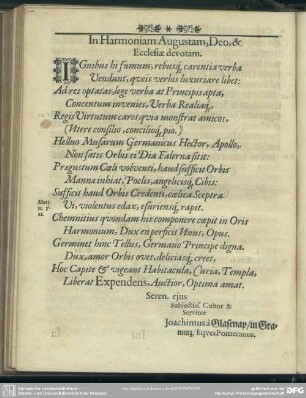 In Harmoniam Augustam, Deo, &
Ecclesiæ devotam.
IGnibus hi fumum, rebusq, carentia verba
Vendunt, qveis verbis luxuriare libet:
Ad res optatas, lege verba at Principis apta,
Concentum invenies, Verba Realiaq,
Regis Virtutum caros qvia monstrat amicos,
(Utere consilio, conciliog, pio.)
Helluo Musarum Germanicus Hector, Apollo,
Non satis Orbis ei Dia Falerna sitit:
Prægustum Cœli volventi, haud sufficit Orbis
Manna inhiat, Poclis, angelicisq, Cibis:
Sufficit haud Orbis Credenti, cœlica Sceptra
Vi, violentus edax, esuriensq, rapit.
Chemnitius qvondam his componere cæpit in Oris
Harmonium, Dux en perficit Unus, Opus.
Germinet hinc Tellus, Germano Principe digna,
Dux, amor Orbis ovet, deliciasq, creet,
Hoc Capite & vigeant Habitacula, Curia, Templa,
Liberat Expendens, Auctior, Optima amat.
Seren. ejus
Subjectiss. Cultor &
Servitor
Joachimus à Glasenap / in Gra-
Eqves Pomeranus.